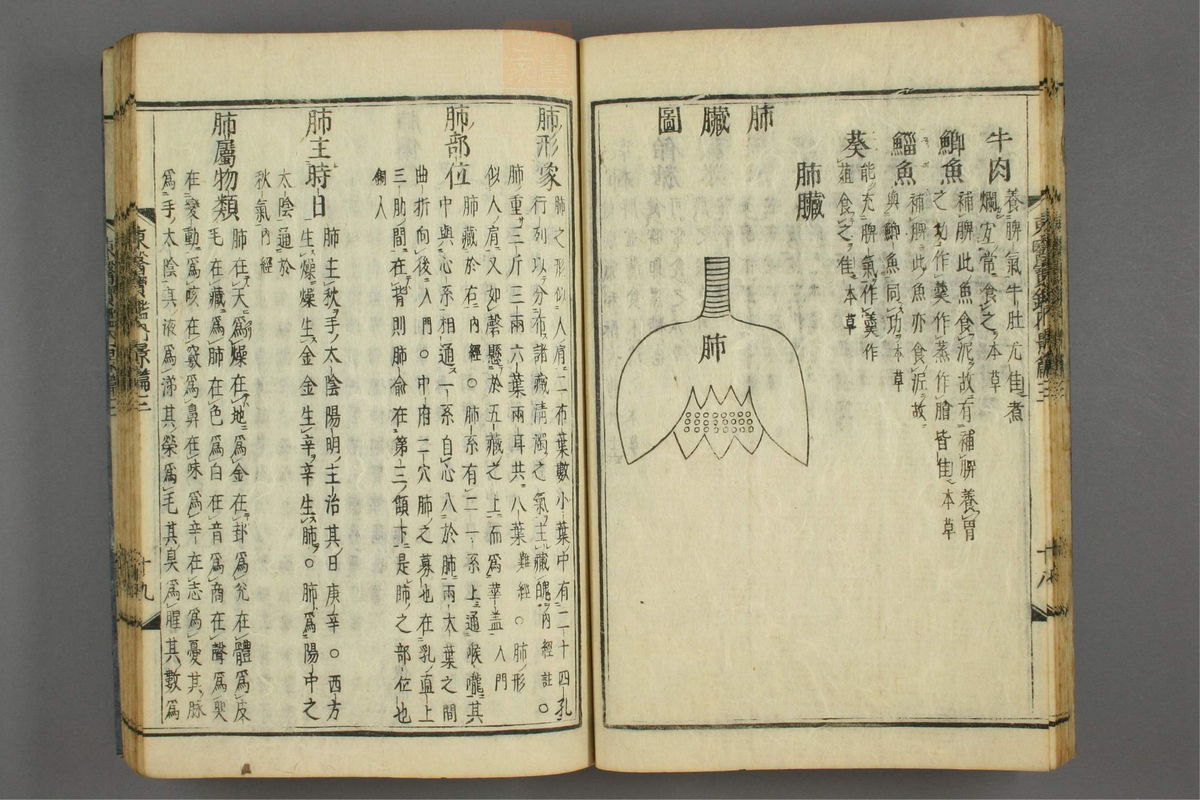 牛肉
養脾氣牛肚尤佳煮
爛宜常食之本草
鯽魚
補脾此魚食泥故有補脾養胃
之功作羹作蒸作膾皆佳本草
鯔魚
補脾此魚亦食泥故
與鯽魚同功本草
葵
能充脾氣作羹作
葅食之佳本草
肺臟
肺臟圖
肺
十八
肺形象
肺之形似人肩二布葉數小葉中有二十四孔
行列以分布諸藏淸濁之氣主藏魄內經註○
肺重三斤三兩六葉兩耳共八葉難經○肺形
似人肩又如磬懸於五藏之上而爲華盖入門
肺部位
肺藏於右內經○肺系有二一系上通喉嚨其
中與心系相通一系自心入於肺兩大葉之間
曲折向後入門○中府二穴肺之募也在乳直上
三肋間在背則肺兪在第三顀下是肺之部位也
銅人
肺主時日
肺主秋手太陰陽明主治其日庚辛○西方
生燥燥生金金生辛辛生肺○肺爲陽中之
太陰通於
秋氣內經
肺屬物類
肺在天爲燥在地爲金在卦爲兌在體爲皮
毛在藏爲肺在色爲白在音爲商在聲爲哭
在變動爲咳在竅爲鼻在味爲辛在志爲憂其脉
爲手太陰其液爲涕其榮爲毛其臭爲腥其數爲
東醫寶鑑內景篇三
十九